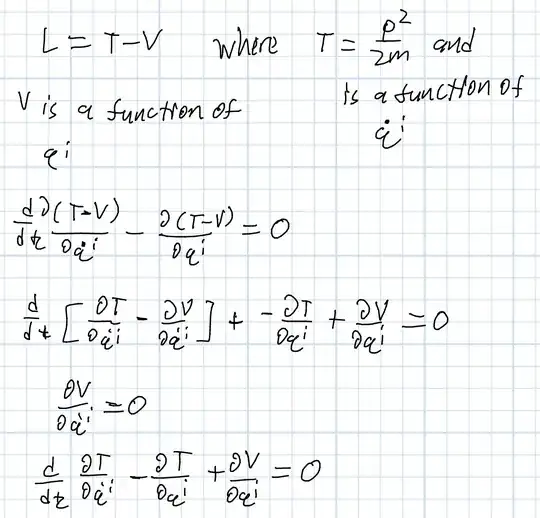 L = T-V where T = p²/2m and
V is a function of qⁱ
is a function of q̇ⁱ
d/dt ∂(T-V)/∂q̇ⁱ - ∂(T-V)/∂qⁱ = 0
d/dt [∂T/∂q̇ⁱ - ∂V/∂q̇ⁱ] + -∂T/∂qⁱ + ∂V/∂qⁱ = 0
∂V/∂q̇ⁱ = 0
d/dt ∂T/∂q̇ⁱ - ∂T/∂qⁱ + ∂V/∂qⁱ = 0